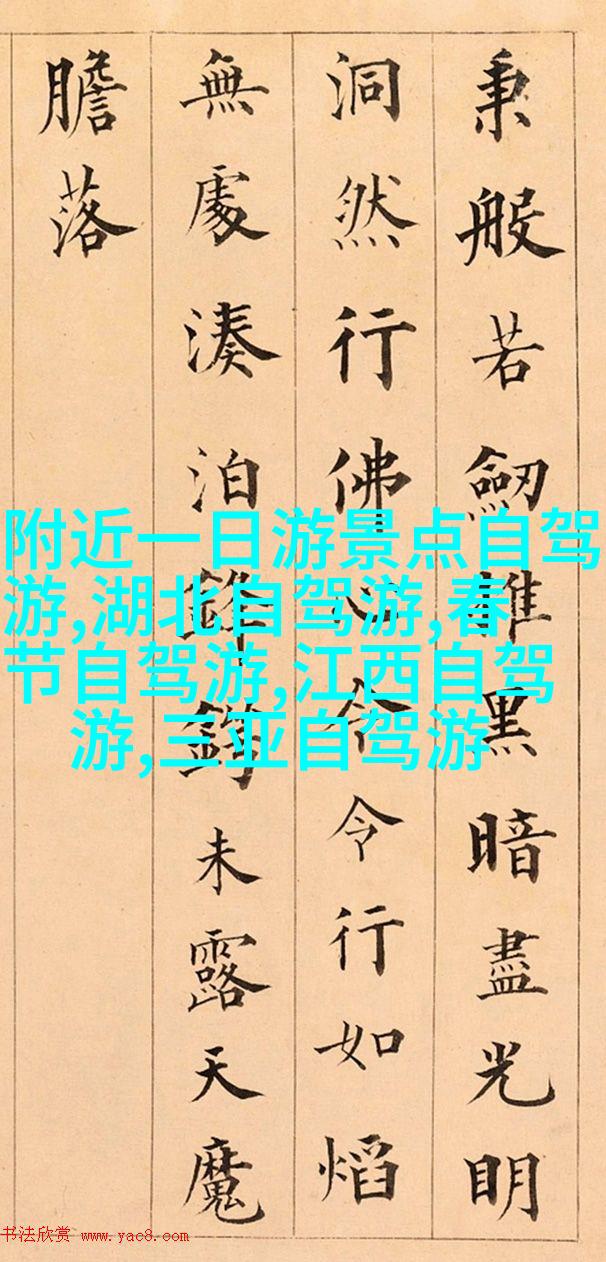 秉般若劒黑暗盡光明
洞然行佛心令令行如熖
無處湊泊鋒鍔未露天魔
膽落
附近一日游景点自驾
游,湖北自驾游,春
节自驾游,江西自驾
游,三亚自驾游
书法欣赏 www.yac8.com